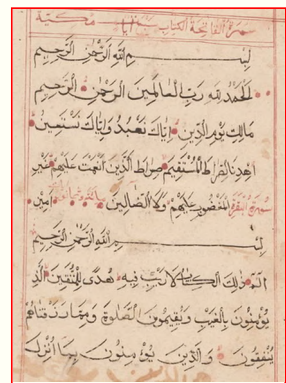 سورة الفاتحة الكتاب سبع آيات مكية
بسم الله الرحمن الرحيم
الحمد لله رب العالمين الرحمن الرحيم
مالك يوم الدين إياك نعبد وإياك نستعين
اهدنا الصراط المستقيم صراط الذين أنعمت عليهم غير
المغضوب عليهم ولا الضالين آمين
سورة البقرة
بسم الله الرحمن الرحيم
الم ذلك الكتاب لا ريب فيه هدى للمتقين الذين
يؤمنون بالغيب ويقيمون الصلوة ومما رزقناهم
ينفقون والذين يؤمنون بما أنزل